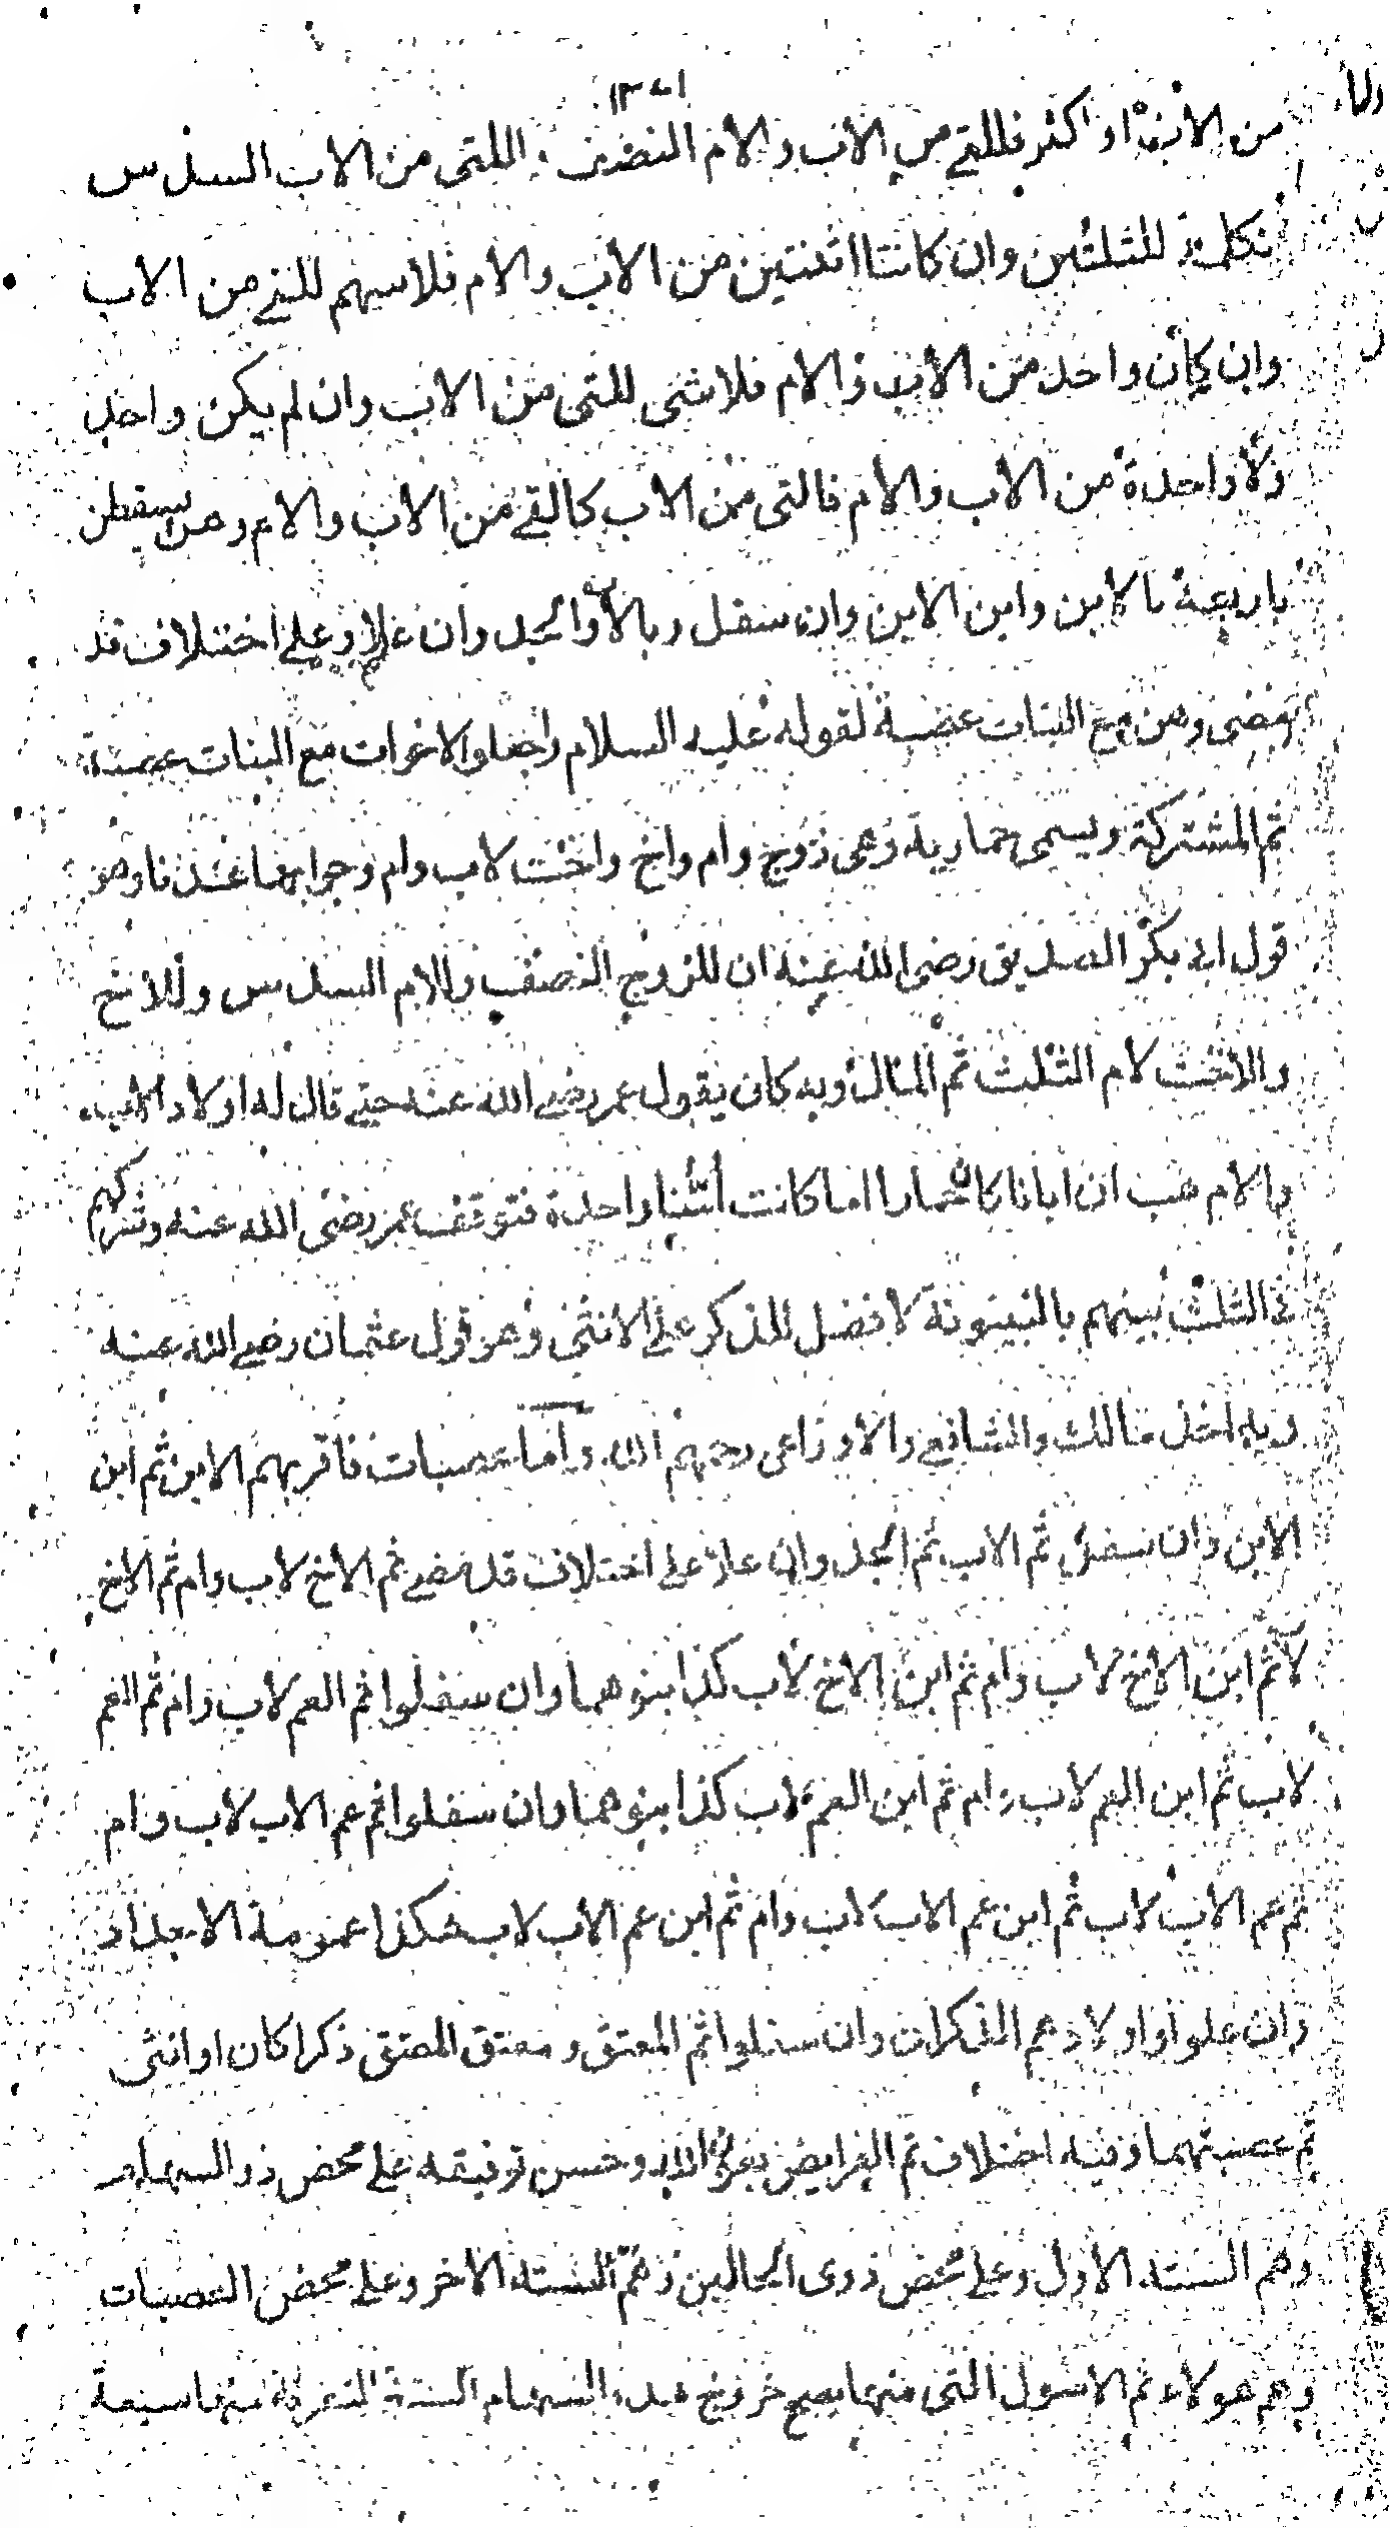 من الاب او اكثر فللتي من الاب والام النصف واللتي من الاب السدس
تكملة للثلثين وان كانتا اثنتين من الاب والام فلا سهم للتي من الاب
وان كان واحد من الاب والام فلا شي للتي من الاب وان لم يكن واحد
ولا واحدة من الاب والام فالتي من الاب كالتي من الاب والام وهن يسقطن
باربعة بالابن وابن الابن وان سفل وبالاب والجد وان علا وعلى اختلاف قد
مضى وهن مع البنات عصبة لقوله عليه السلام واجعلوا الاخوات مع البنات عصبة
ثم المشتركة ويسمى حمارية وهي زوج وام واخ واخت لاب وام وجوابها عندنا وهو
قول ابي بكر الصديق رضي الله عنه ان للزوج النصف وللام السدس وللاخ
والاخت لام الثلث ثم المال وبه كان يقول عمر رضي الله عنه حتى قال له اولاد الاب
والام هب ان ابانا كان حمارا اما كانت امنا واحدة فتوقف عمر رضي الله عنه وشركهم
في الثلث بينهم بالسوية لا فضل للذكر على الانثى وهو قول عثمان رضي الله عنه
وبه اخذ مالك والشافعي والاوزاعي رحمهم الله واما عصبات فاقربهم الابن ثم ابن
الابن وان سفل ثم الاب ثم الجد وان علا على اختلاف قد مضى ثم الاخ لاب وام ثم الاخ
لاب ثم ابن الاخ لاب وام ثم ابن الاخ لاب كذا بنوهما وان سفلوا ثم العم لاب وام ثم العم
لاب ثم ابن العم لاب وام ثم ابن العم لاب كذا بنوهما وان سفلوا ثم عم الاب لاب وام
ثم عم الاب لاب ثم ابن عم الاب لاب وام ثم ابن عم الاب لاب هكذا عمومة الاجداد
وان علوا واولادهم الذكران وان سفلوا ثم المعتق ومعتق المعتق ذكرا كان او انثى
ثم عصبتهما وفيه اختلاف ثم الفرايض بعون الله وحسن توفيقه على محض ذو السهام
وهم الستة الاول وعلى محض ذوى الحالين وهم الستة الاخر وعلى محض العصبات
وهم هولاء ثم الاصول التي منها يصح خروج هذه السهام الستة المفروضة منها سبعة